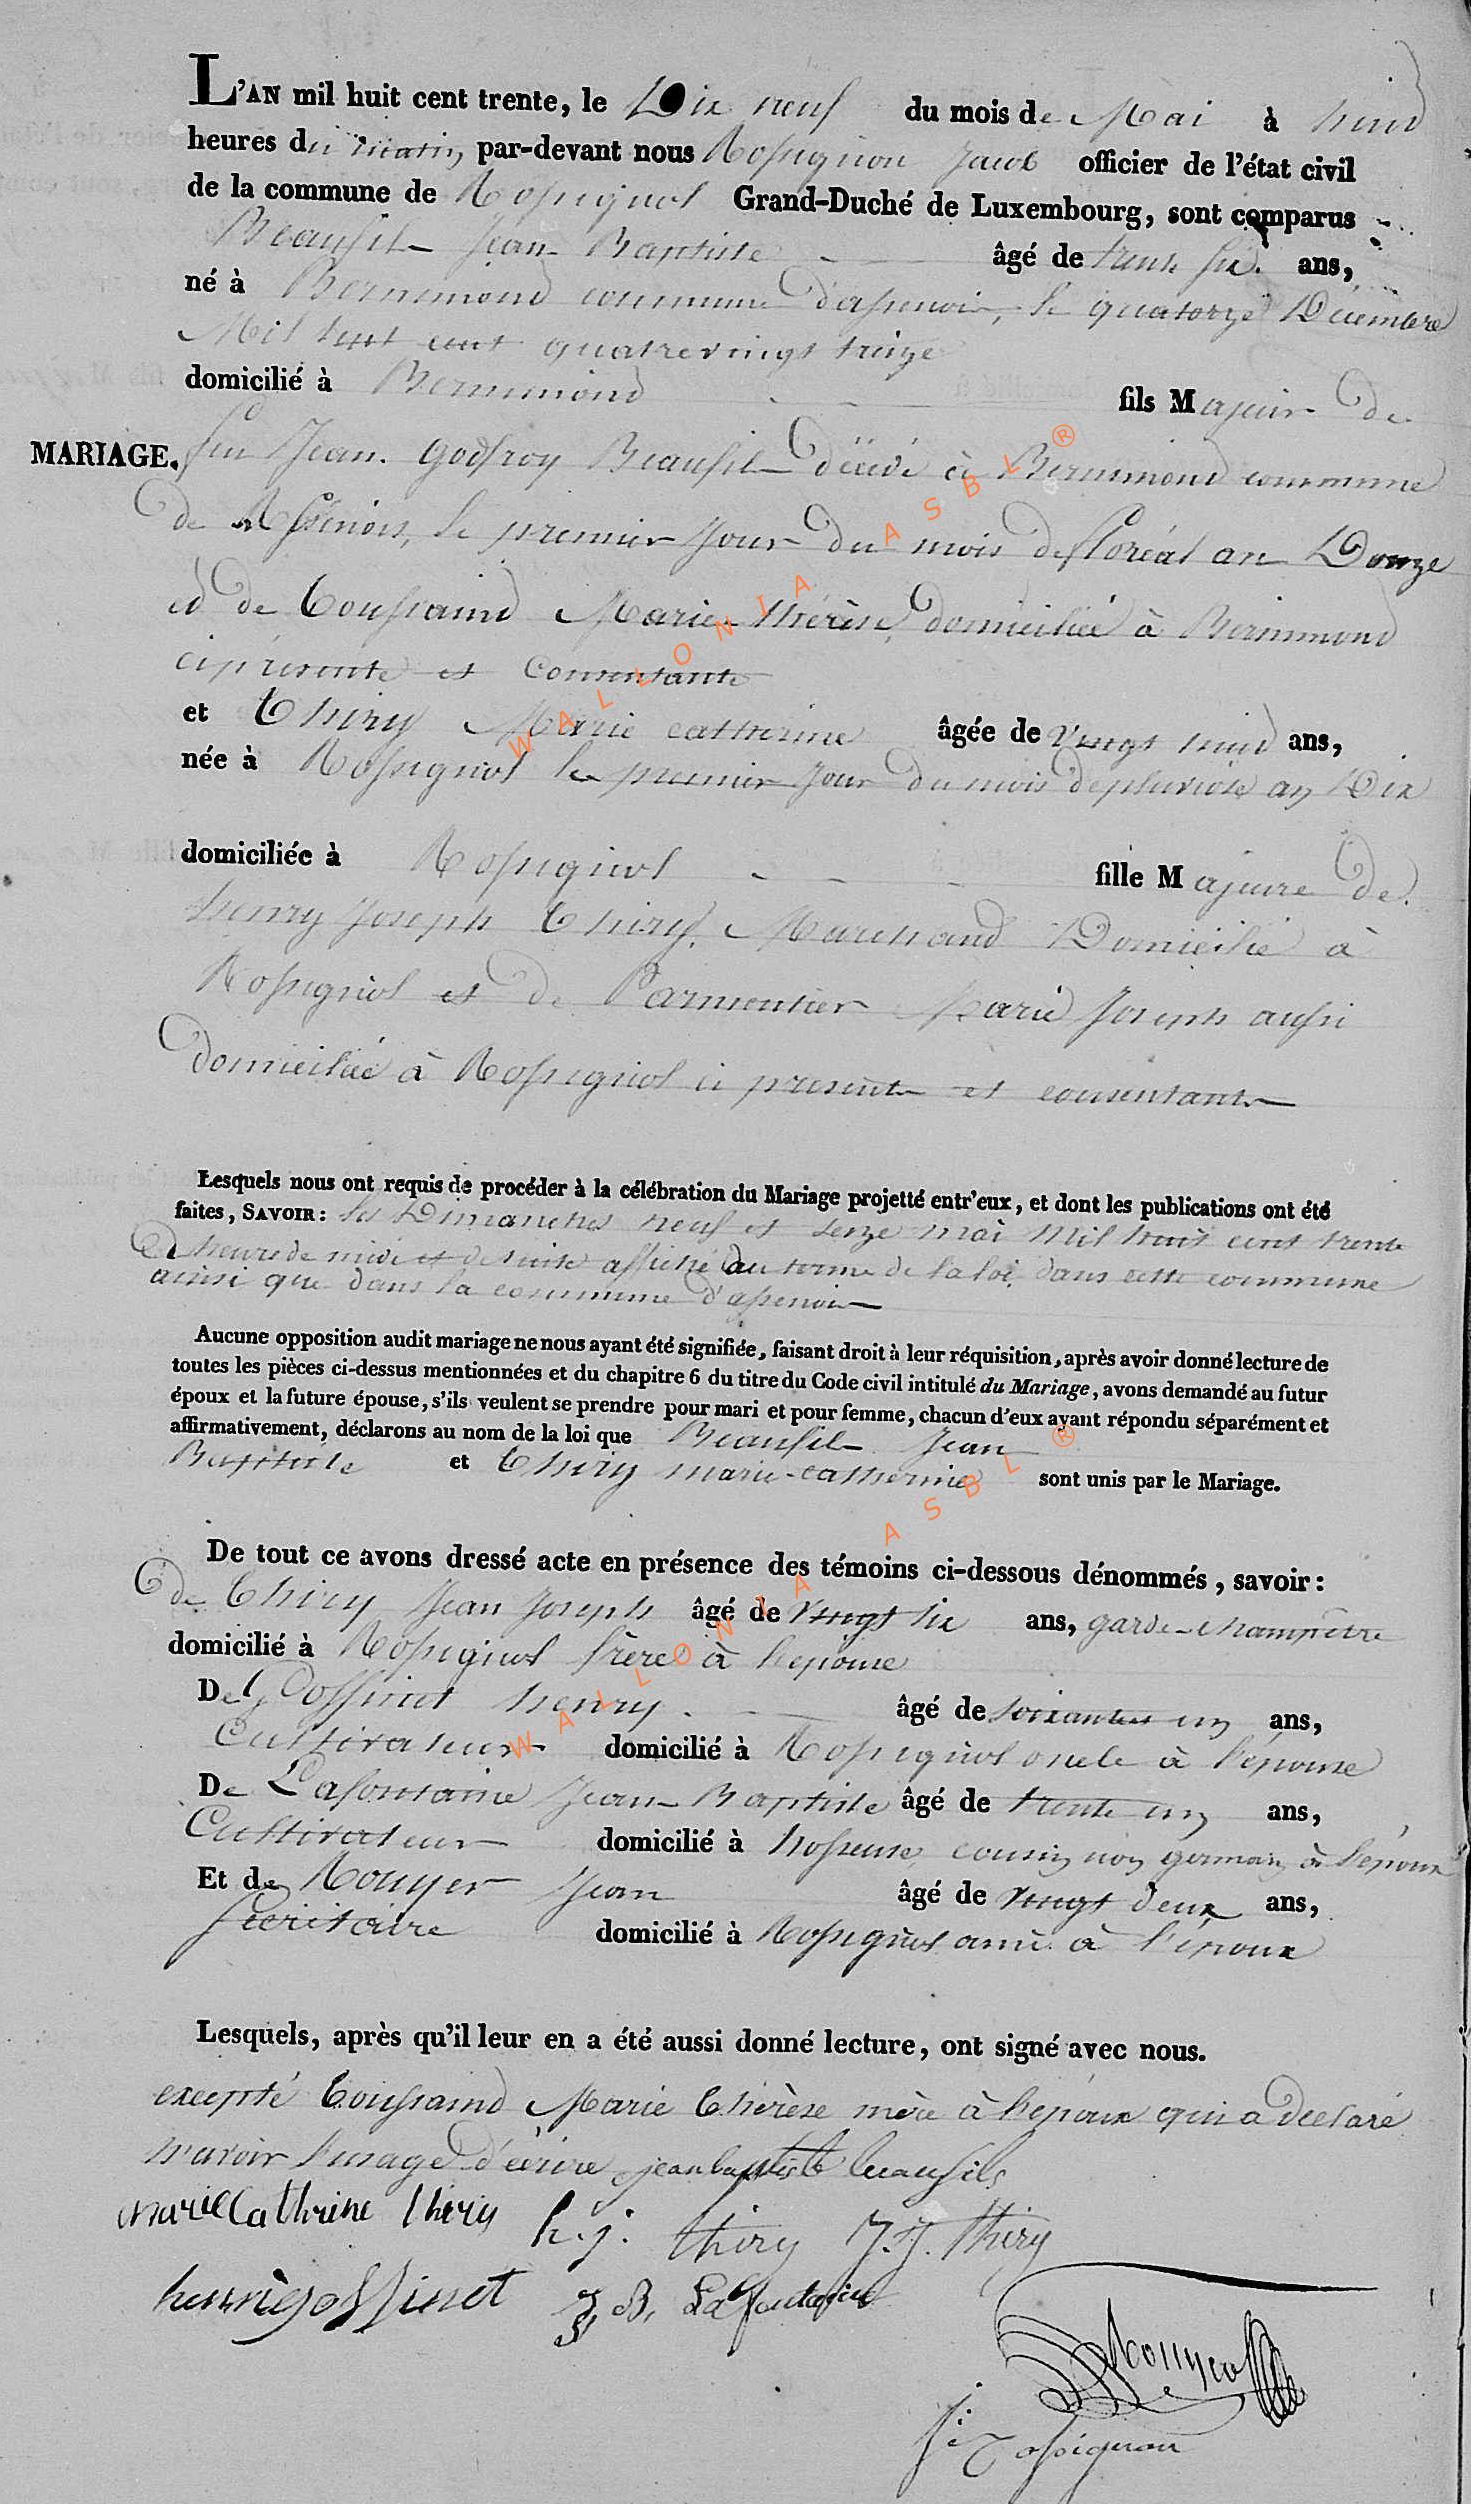 L'AN mil huit cent trente, le Dix neuf du mois de Mai à huid
heures du matin, par-devant nous Rossignon Jacob officier de l'état civil
de la commune de Rossignol Grand-Duché de Luxembourg, sont comparus
Beaufil Jean Baptiste âgé de trente six ans,
né à Bernimond commune d'assenoir, le quatorze Décembre
Mil sept cent quatrevingt treize
domicilié à Bernimond fils Majeur de
MARIAGE. feu Jean Godfroy Beaufil décédé à Bernimond commune
de Assenois, le premier jour du mois de floréal an Douze
et de Toussaind Marie thérèse, domiciliée à Bernimond
ci présente et Consentante
et Thiry Marie catherine âgée de vingt huid ans,
née à Rossignol le premier jour du mois de pluviose an Dix
domiciliée à Rossignol fille Majeure de
henry Joseph Thiry, Marchand Domicilié à
Rossignol et de Parmentier Marie Joseph aussi
domiciliée à Rossignol ci present et consentant
Lesquels nous ont requis de procéder à la célébration du Mariage projetté entr'eux, et dont les publications ont été
faites, SAVOIR: les Dimanches neuf et seize mai Mil huit cent trente
à heure de midi et de suite affiché au terme de la loi dans cette commune
ainsi que dans la commune d'assenoi
Aucune opposition audit mariage ne nous ayant été signifiée, faisant droit à leur réquisition, après avoir donné lecture de
toutes les pièces ci-dessus mentionnées et du chapitre 6 du titre du Code civil intitulé du Mariage, avons demandé au futur
époux et la future épouse, s'ils veulent se prendre pour mari et pour femme, chacun d'eux ayant répondu séparément et
affirmativement, déclarons au nom de la loi que Beaufil Jean
Baptiste et Thiry marie-catherine sont unis par le Mariage.
De tout ce avons dressé acte en présence des témoins ci-dessous dénommés, savoir:
de Thiry Jean Joseph âgé de vingt six ans, garde-champêtre
domicilié à Rossignol frère à l'epouse
De Gossinet henry âgé de soixante un ans,
Cultivateur domicilié à Rossignol oncle à l'épouse
De Lafontaine Jean Baptiste âgé de trente un ans,
Cultivateur domicilié à hosseuse, cousin non germain à l'époux
Et de Rouyer Jean âgé de vingt deux ans,
Secrétaire domicilié à Rossignol ami à l'époux
Lesquels, après qu'il leur en a été aussi donné lecture, ont signé avec nous.
excepté Toussaind Marie Thérèse mère à l'epoux qui a declaré
n'avoir l'usage d'écrire jean baptiste beaufils
marie Cathrine thiry h. j. thiry J. J. thiry
henri gossinet J B. Lafontaine
Rouyer
J: Rossignon
WALLONIA ASBL ®
WALLONIA ASBL ®